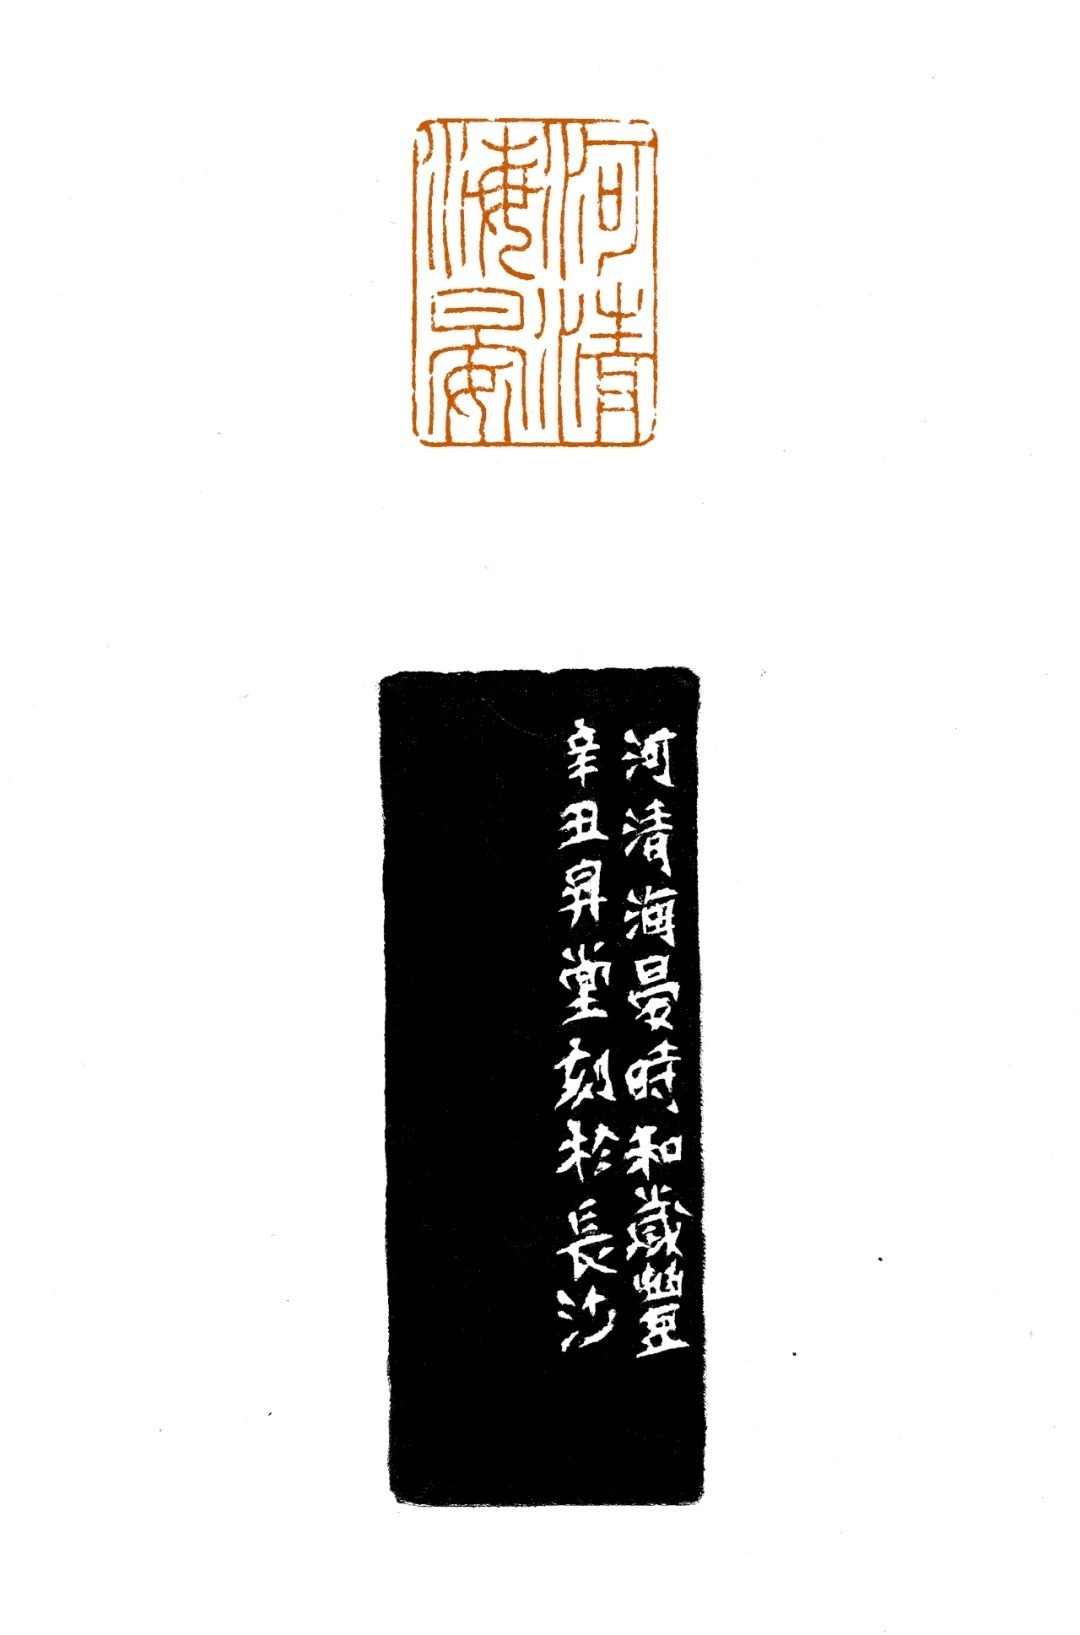 河清
海晏
河清海晏時和歲豐
辛丑昇堂刻於長沙